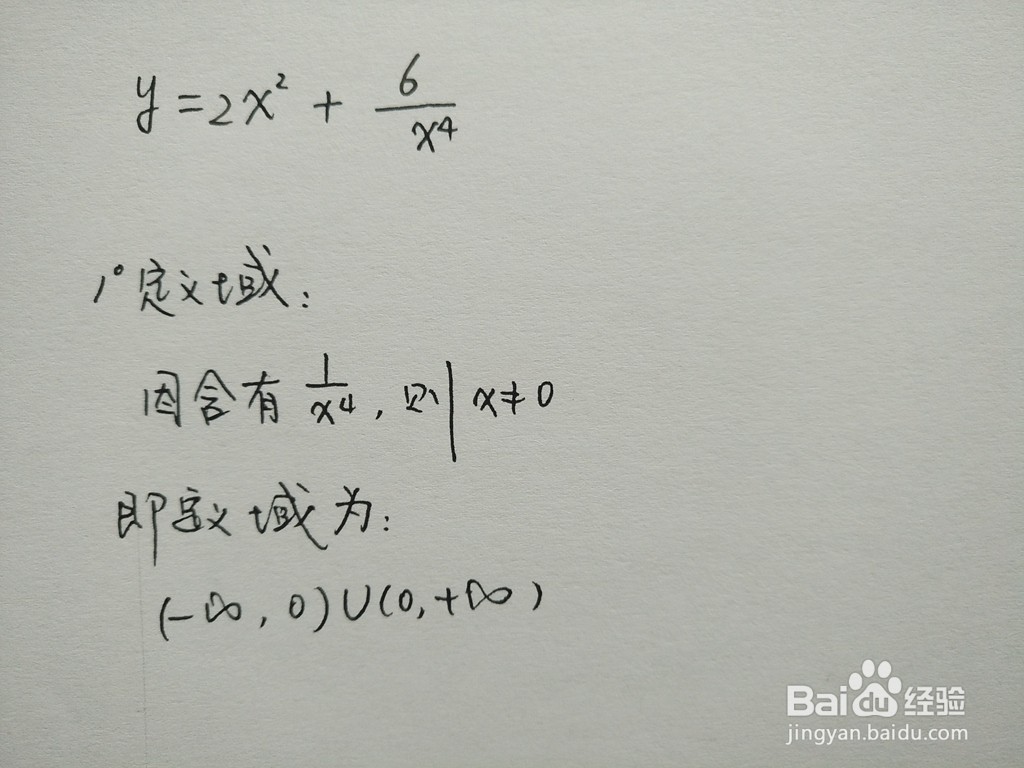 y=2x²+6/x⁴
1°定义域:
因含有1/x⁴,则|x≠0
即定义域为:
(-∞,0)∪(0,+∞)
Baidu经验
jingyan.baidu.com